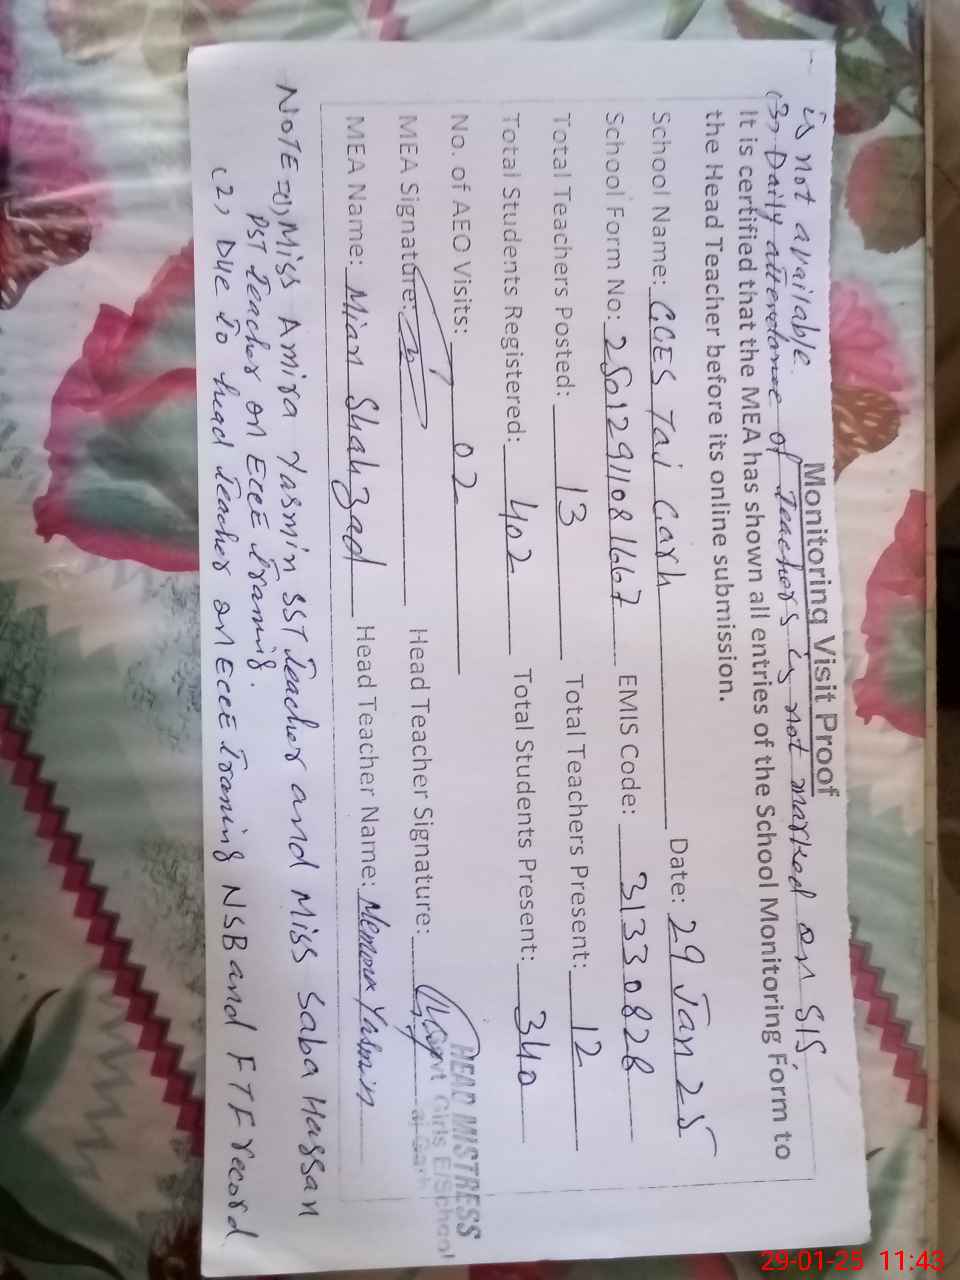 is not available.
(3), Daily attendance of Teachers is not marked on SIS
Monitoring Visit Proof
It is certified that the MEA has shown all entries of the School Monitoring Form to
the Head Teacher before its online submission.
School Name: GGES Taj Garh Date: 29 Jan 25
School Form No: 2501291108 1667 EMIS Code: 31330828
Total Teachers Posted: 13 Total Teachers Present: 12
Total Students Registered: 402 Total Students Present: 340
No. of AEO Visits: 02
MEA Signature: Head Teacher Signature:
HEAD MISTRESS
Govt Girls E/School
aj Garh
MEA Name: Mian Shahzad Head Teacher Name: Memona Yasmin
NOTE =(1), Miss Amira Yasmin SST Teacher and Miss Saba Hassan
PST Teacher on ECCE Traning.
(2), Due To head Teacher on ECCE Traning NSB and FTF record
29-01-25 11:43